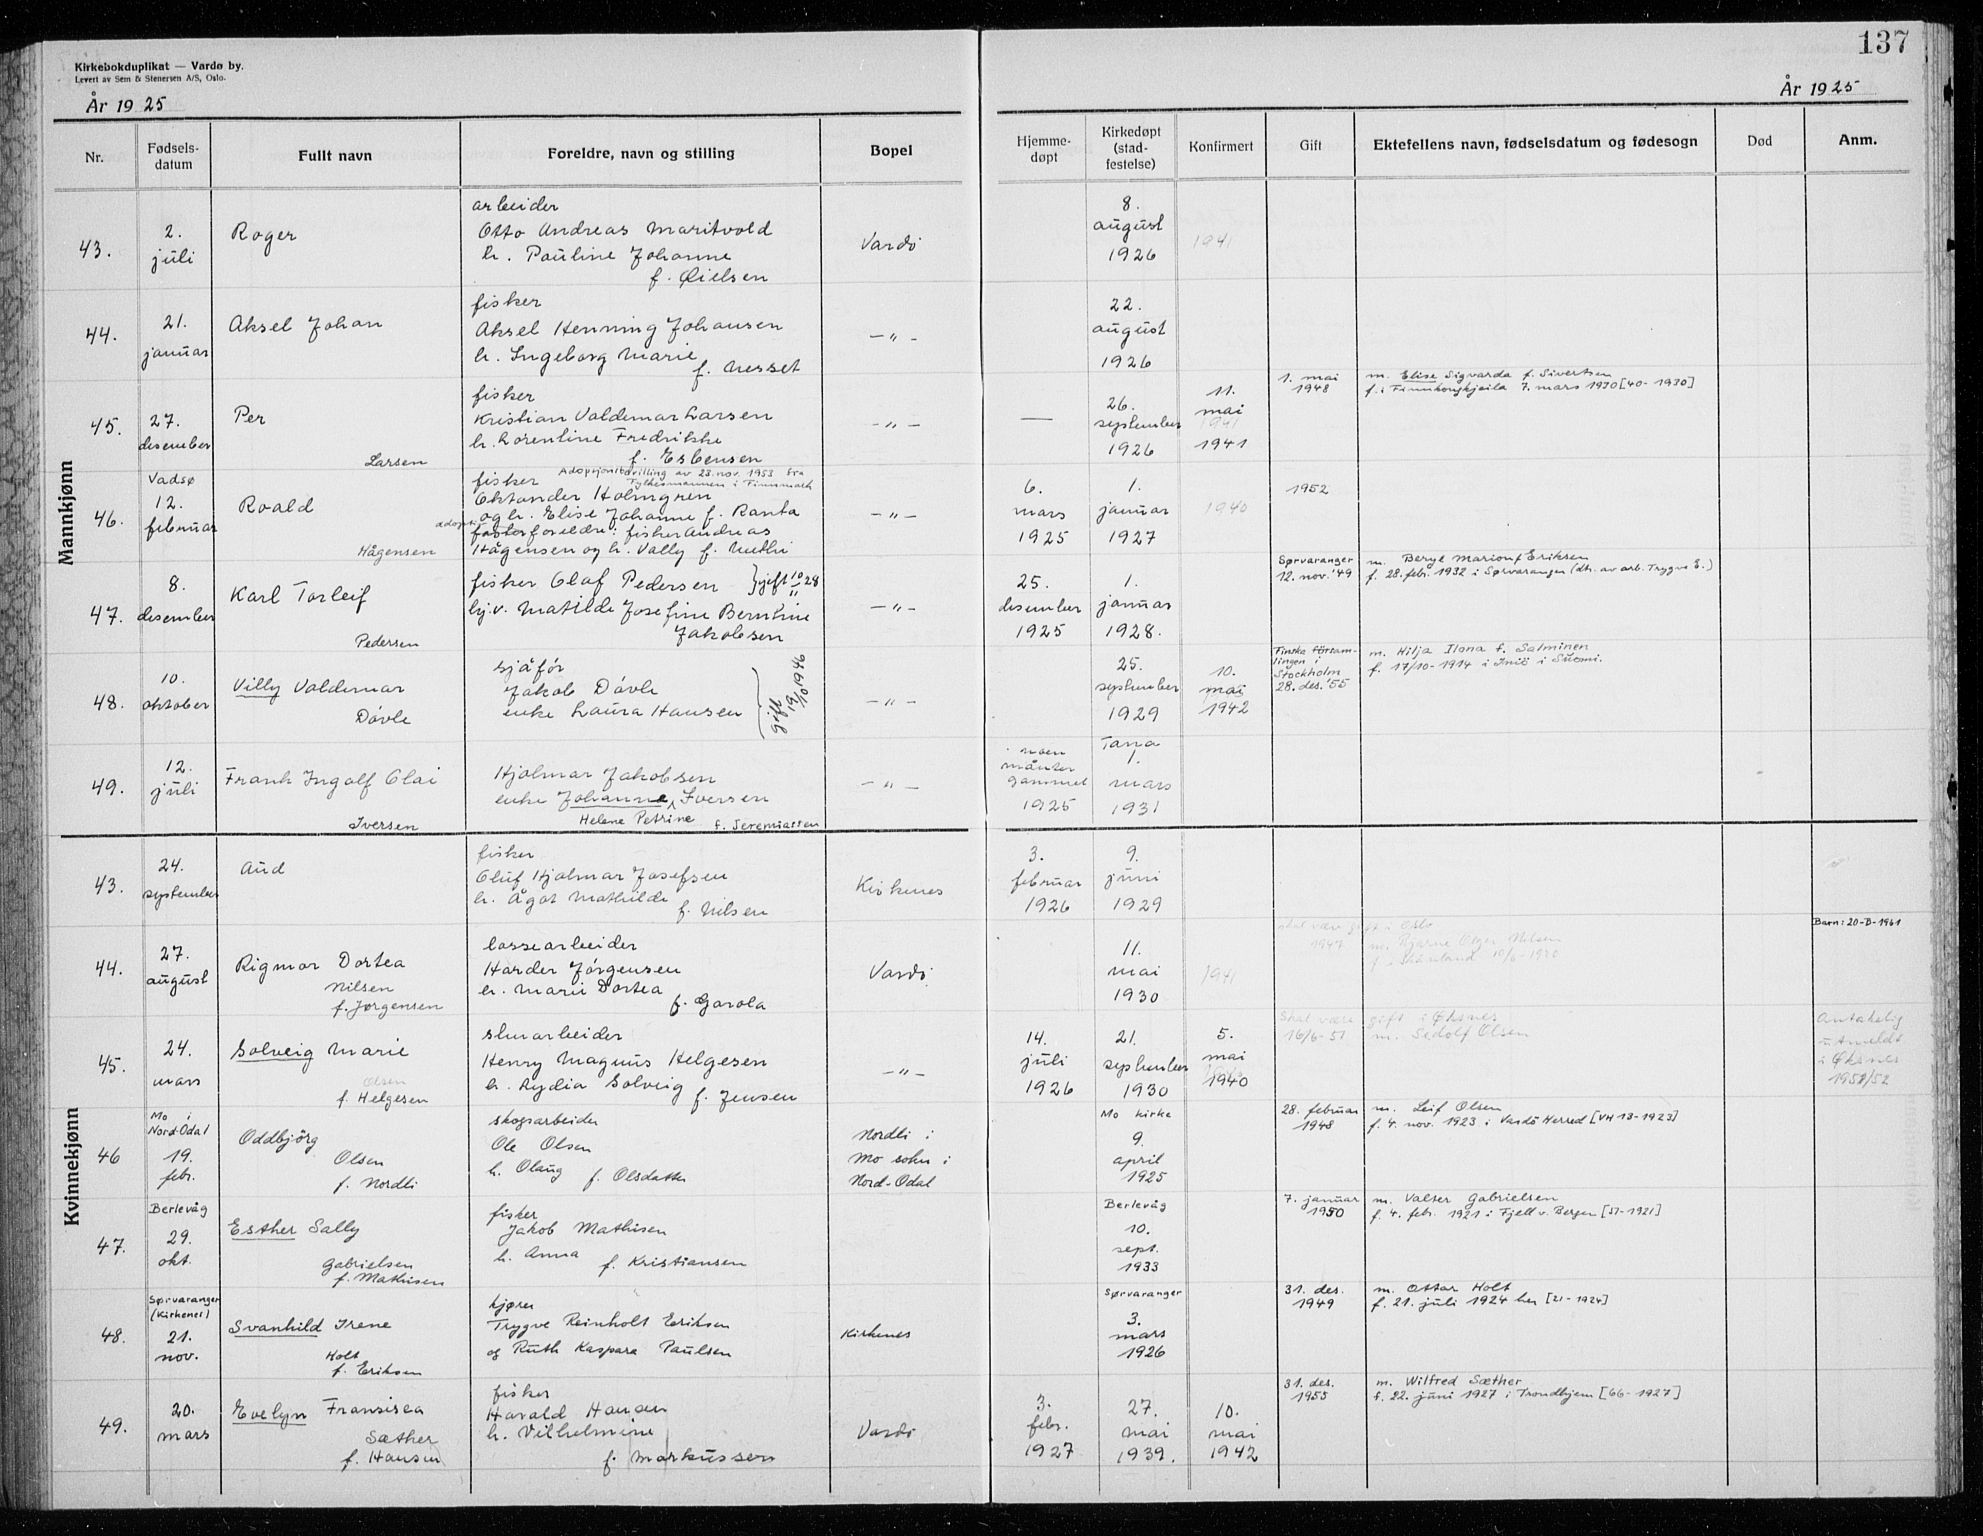 137
Kirkebokduplikat — Vardø by.
Levert av Sem & Stenersen A/S, Oslo.
År 1925
År 1925
Nr.
Fødsels-
datum
Fullt navn
Foreldre, navn og stilling
Bopel
Hjemme-
døpt
Kirkedøpt
(stad-
festelse)
Konfirmert
Gift
Ektefellens navn, fødselsdatum og fødesogn
Død
Anm.
Mannkjønn
43.
2.
juli
Roger
arbeider
Otto Andreas Maritvold
h. Pauline Johanne
Vardö
8.
august
1926
1941
44.
21.
januar
Aksel Johan
fisker
Aksel Henning Johansen
h. Ingeborg Marie
f. Nesset
— " —
22.
august
1926
45.
27.
desember
Per
Larsen
fisker
Kristian Valdemar Larsen
h. Lorentine Fredrikke
f. Esbensen
— " —
—
26.
september
1926
11.
mai
1941
1941
1. mai
1948
m. Elise Sigvarda f. Sivertsen
f. i Finnkongkjeila 7. mars 1930 [40-1930]
46.
Vadsø
12.
februar
Roald
Hågensen
fisker
Adopsjonsbevilling av 23. nov. 1953 fra
Fylkesmannen i Finnmark
Oktander Holmgren
og h. Elise Johanne f. Ranta
adoptiv
fosterforeldre: fisker Andreas
Hågensen og h. Vally f. Muthi
— " —
6.
mars
1925
1.
januar
1927
1940
1952
47.
8.
desember
Karl Torleif
Pedersen
fisker Olaf Pedersen } gift 10/11 28
Matilde Josefine Berntine
Jakobsen
— " —
25.
desember
1925
1.
januar
1928.
Sørvaranger
12. nov. '49
m. Beryl Marion f. Eriksen
f. 28. febr. 1932 i Sørvaranger (dtr. av arb. Trygve E.)
48.
10.
oktober
Villy Valdemar
Dövle
sjåför
Jakob Dövle
enke Laura Hansen
gift
19/10 1946
— " —
25.
september
1929
10.
mai
1942
Finska försam-
lingen i
Stockholm
28. des. '55
m. Hilja Ilona f. Salminen
f. 17/10-1914 i Iniö i Suomi.
49.
12.
juli
Frank Ingolf Olai
Iversen
Hjalmar Jakobsen
enke Johanne Iversen
Helene Petrine f. Jeremiassen
— " —
noen
månter
gammel
1925
Tana
1.
mars
1931
Kvinnekjønn
43.
24.
september
Aud
fisker
Oluf Hjalmar Josefsen
h. Ågot Mathilde
f. Nilsen
Kirkenes
3.
februar
1926
9.
juni
1929
44.
27.
august
Rigmor Dortea
Nilsen
f. Jørgensen
lossearbeider
Harder Jörgensen
h. Marie Dortea
f. Garola
Vardö
11.
mai
1930
1941
skal være gift i Oslo
1947
m. Bjarne Olger Nilsen
f. i Skånland 10/6-1920
Barn: 20-B-1961
45.
24.
mars
Solveig Marie
Olsen
f. Helgesen
slusarbeider
Henry Magnus Helgesen
h. Lydia Solveig
f. Jensen
— " —
14.
juli
1926
21.
september
1930
5.
mai
1940
Skal være gift i Øksnes
16/6-51
m. Sedolf Olsen
Antakelig
u. Anmeldt
i Øksnes
1952/52
46
Mo i
Nord-Odal
19.
febr.
Oddbjörg
Olsen
f. Nordli
skogsarbeider
Ole Olsen
h. Olaug f. Olsdatter
Nordli i
Mo sokn i
Nord-Odal
Mo kirke
9.
april
1925
28. februar
1948
m. Leif Olsen
f. 4. nov. 1923 i Vardö Herred [VH 13-1923]
47.
Berlevåg
29.
okt.
Esther Sally
Gabrielsen
f. Mathisen
fisker
Jakob Mathisen
h. Anna f. Kristiansen
Berlevåg
10.
sept.
1933
7. januar
1950
m. Valter Gabrielsen
f. 4. feb. 1921 i Fjell v. Bergen [51-1921]
48.
Sørvaranger
(Kirkenes)
21.
nov.
Svanhild Irene
Holt
f. Eriksen
kjører
Trygve Reinholt Eriksen
og Ruth Kaspara Paulsen
Kirkenes
Sørvaranger
3.
mars
1926
31. des.
1949
m. Ottar Holt
f. 21. juli 1924 her [21-1924]
49.
20.
mars
Evelyn Fransisca
Sæther
f. Hansen
fisker
Harald Hansen
h. Vilhelmine
f. Markussen
Vardö
3.
febr.
1927
27.
mai
1939.
10.
mai
1942
31. des.
1955
m. Wilfred Sæther
f. 22. juni 1927 i Trondhjem [66-1927]